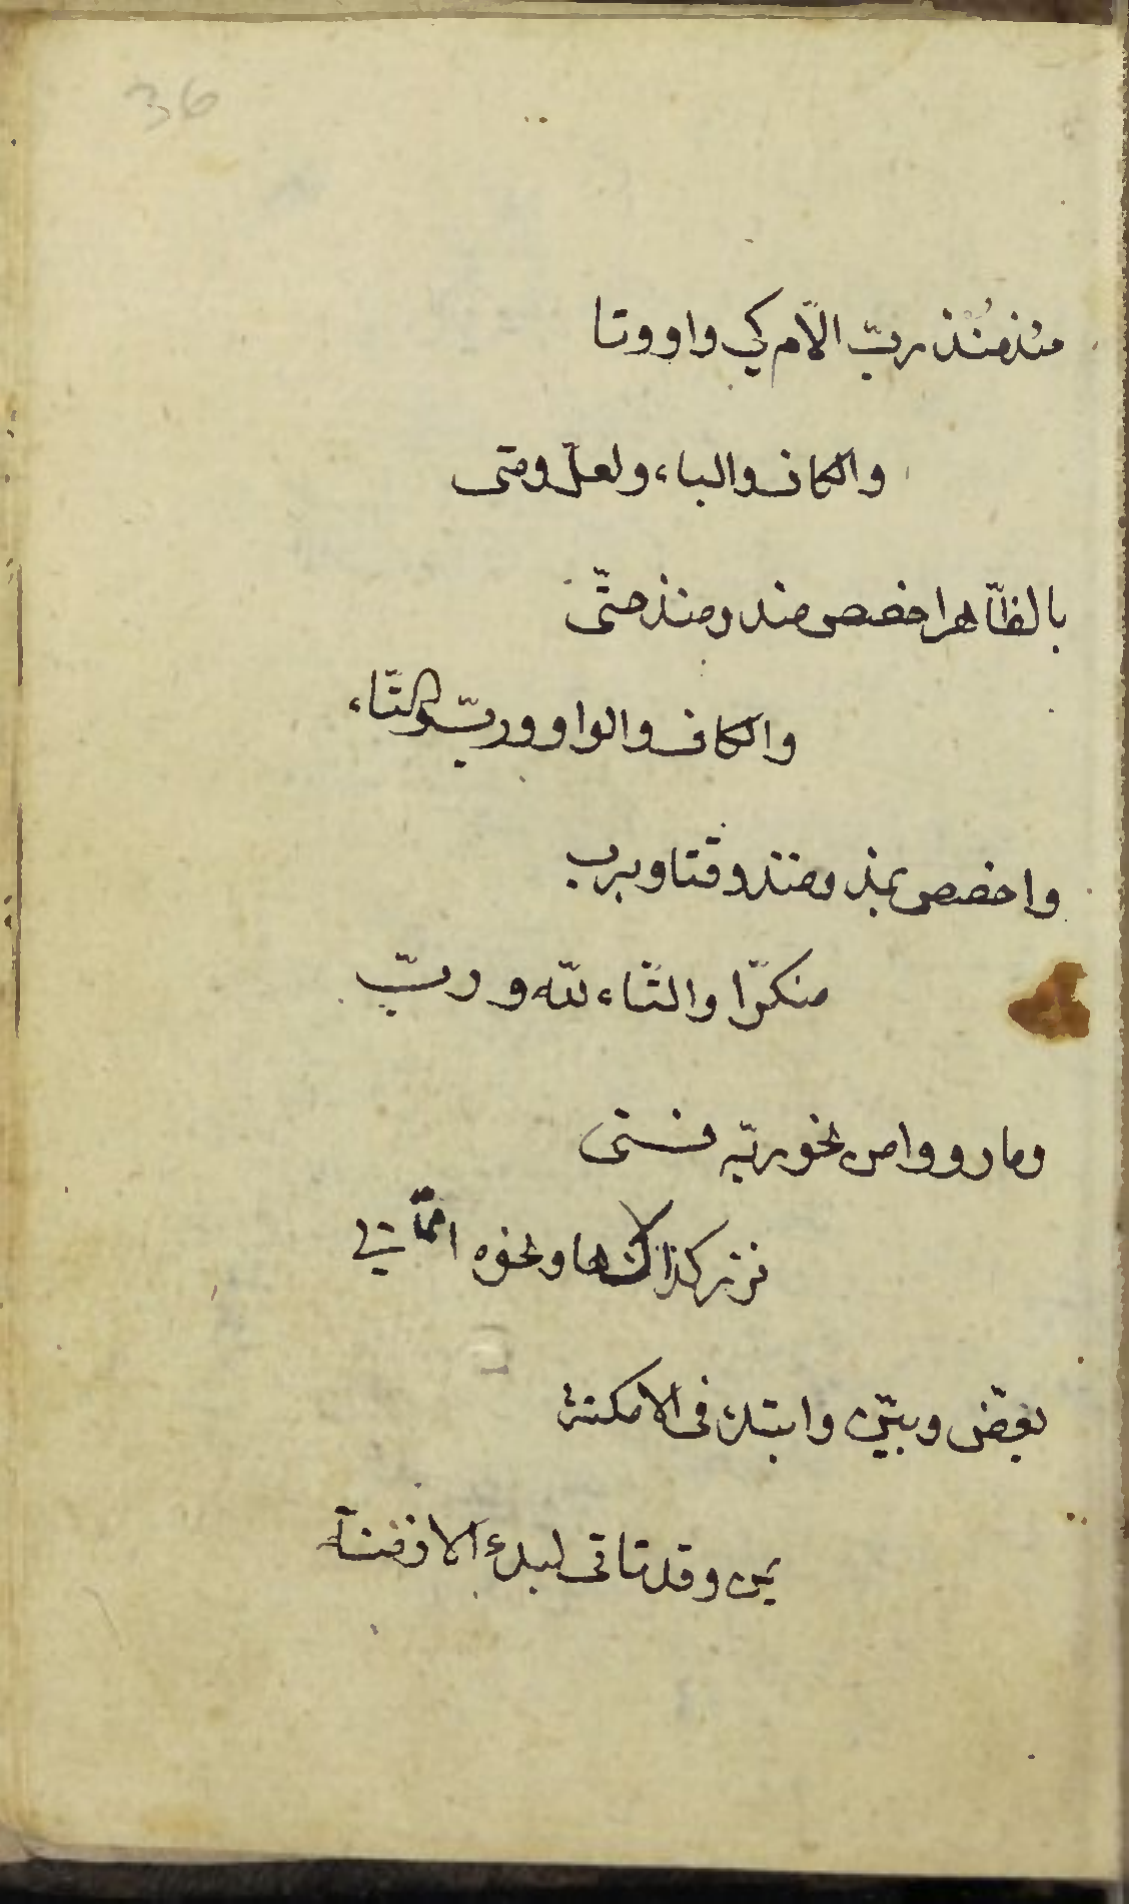 36
مذ منذ ربّ الاّم كي واو وتا
والكاف والباء ولعلّ ومتى
بالظاّهر اخصص منذ ومنذ حتّى
والكاف والواو وربّ والتّاء
واخصص بمذ ومنذ وقتا وبرب
منكرّا والتّاء للّه وربّ
وما رووا من نحو ربّه فتى
نزر كذاك ها ونحوه اتى
بعّض وبيّن وابتدئ فى الامكنة
بمن وقد تاتى لبدء الازمنة